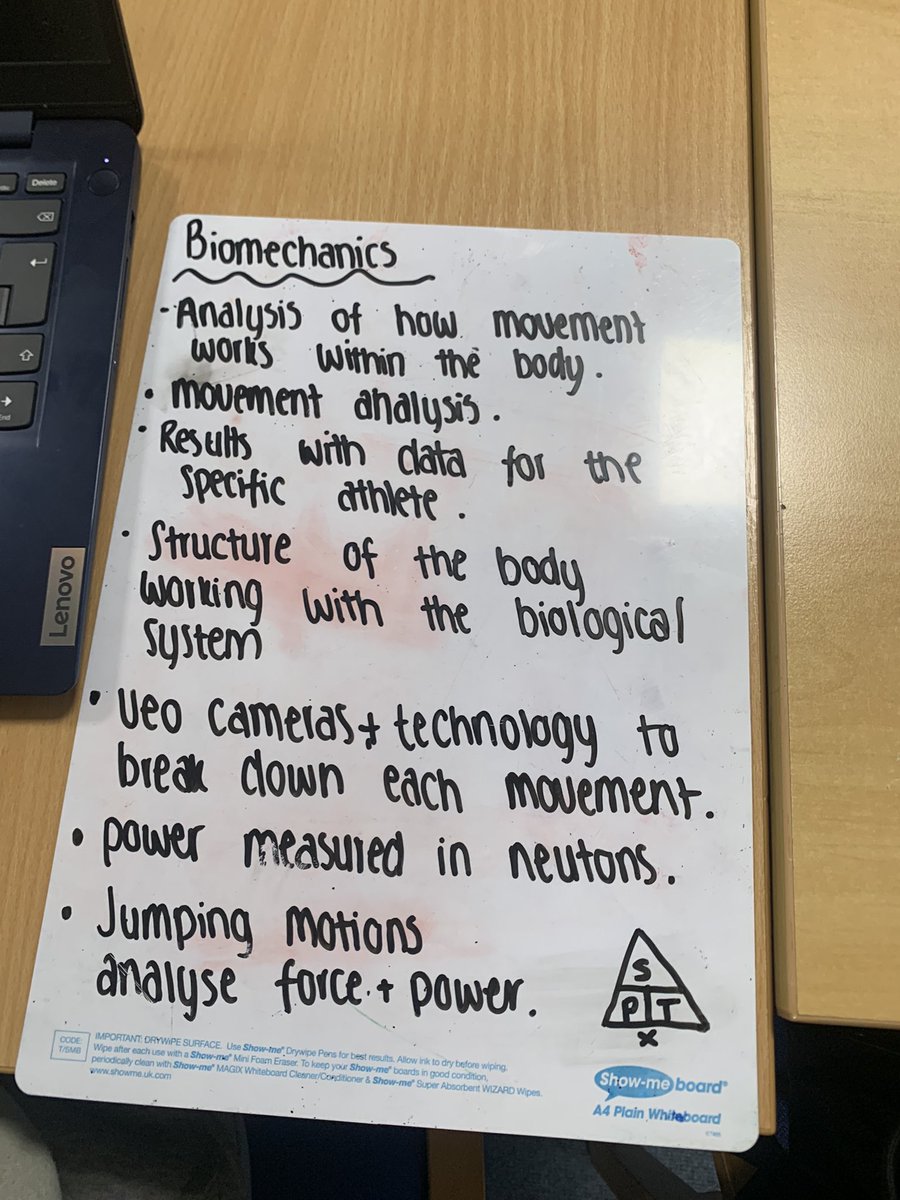 Delete
End
Lenovo
Biomechanics
- Analysis of how movement
works within the body.
• Movement analysis.
• Results with data for the
specific athlete.
• Structure of the body
working with the biological
system
• Veo cameras + technology to
break down each movement.
• power measured in neutons.
• Jumping motions
analyse force + power.
S
P T
x
CODE:
T/5MB
IMPORTANT: DRYWIPE SURFACE. Use Show-me® Drywipe Pens for best results. Allow ink to dry before wiping.
Wipe after each use with a Show-me® Mini Foam Eraser. To keep your Show-me® boards in good condition,
periodically clean with Show-me® MAGIX Whiteboard Cleaner/Conditioner & Show-me® Super Absorbent WIZARD Wipes.
www.showme.uk.com
Show-me board®
A4 Plain Whiteboard